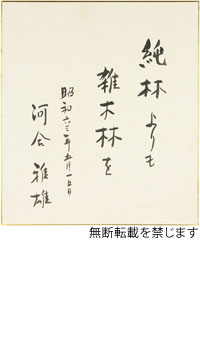 純林よりも
雑木林を
昭和六三年五月一五日
河合雅雄
無断転載を禁じます